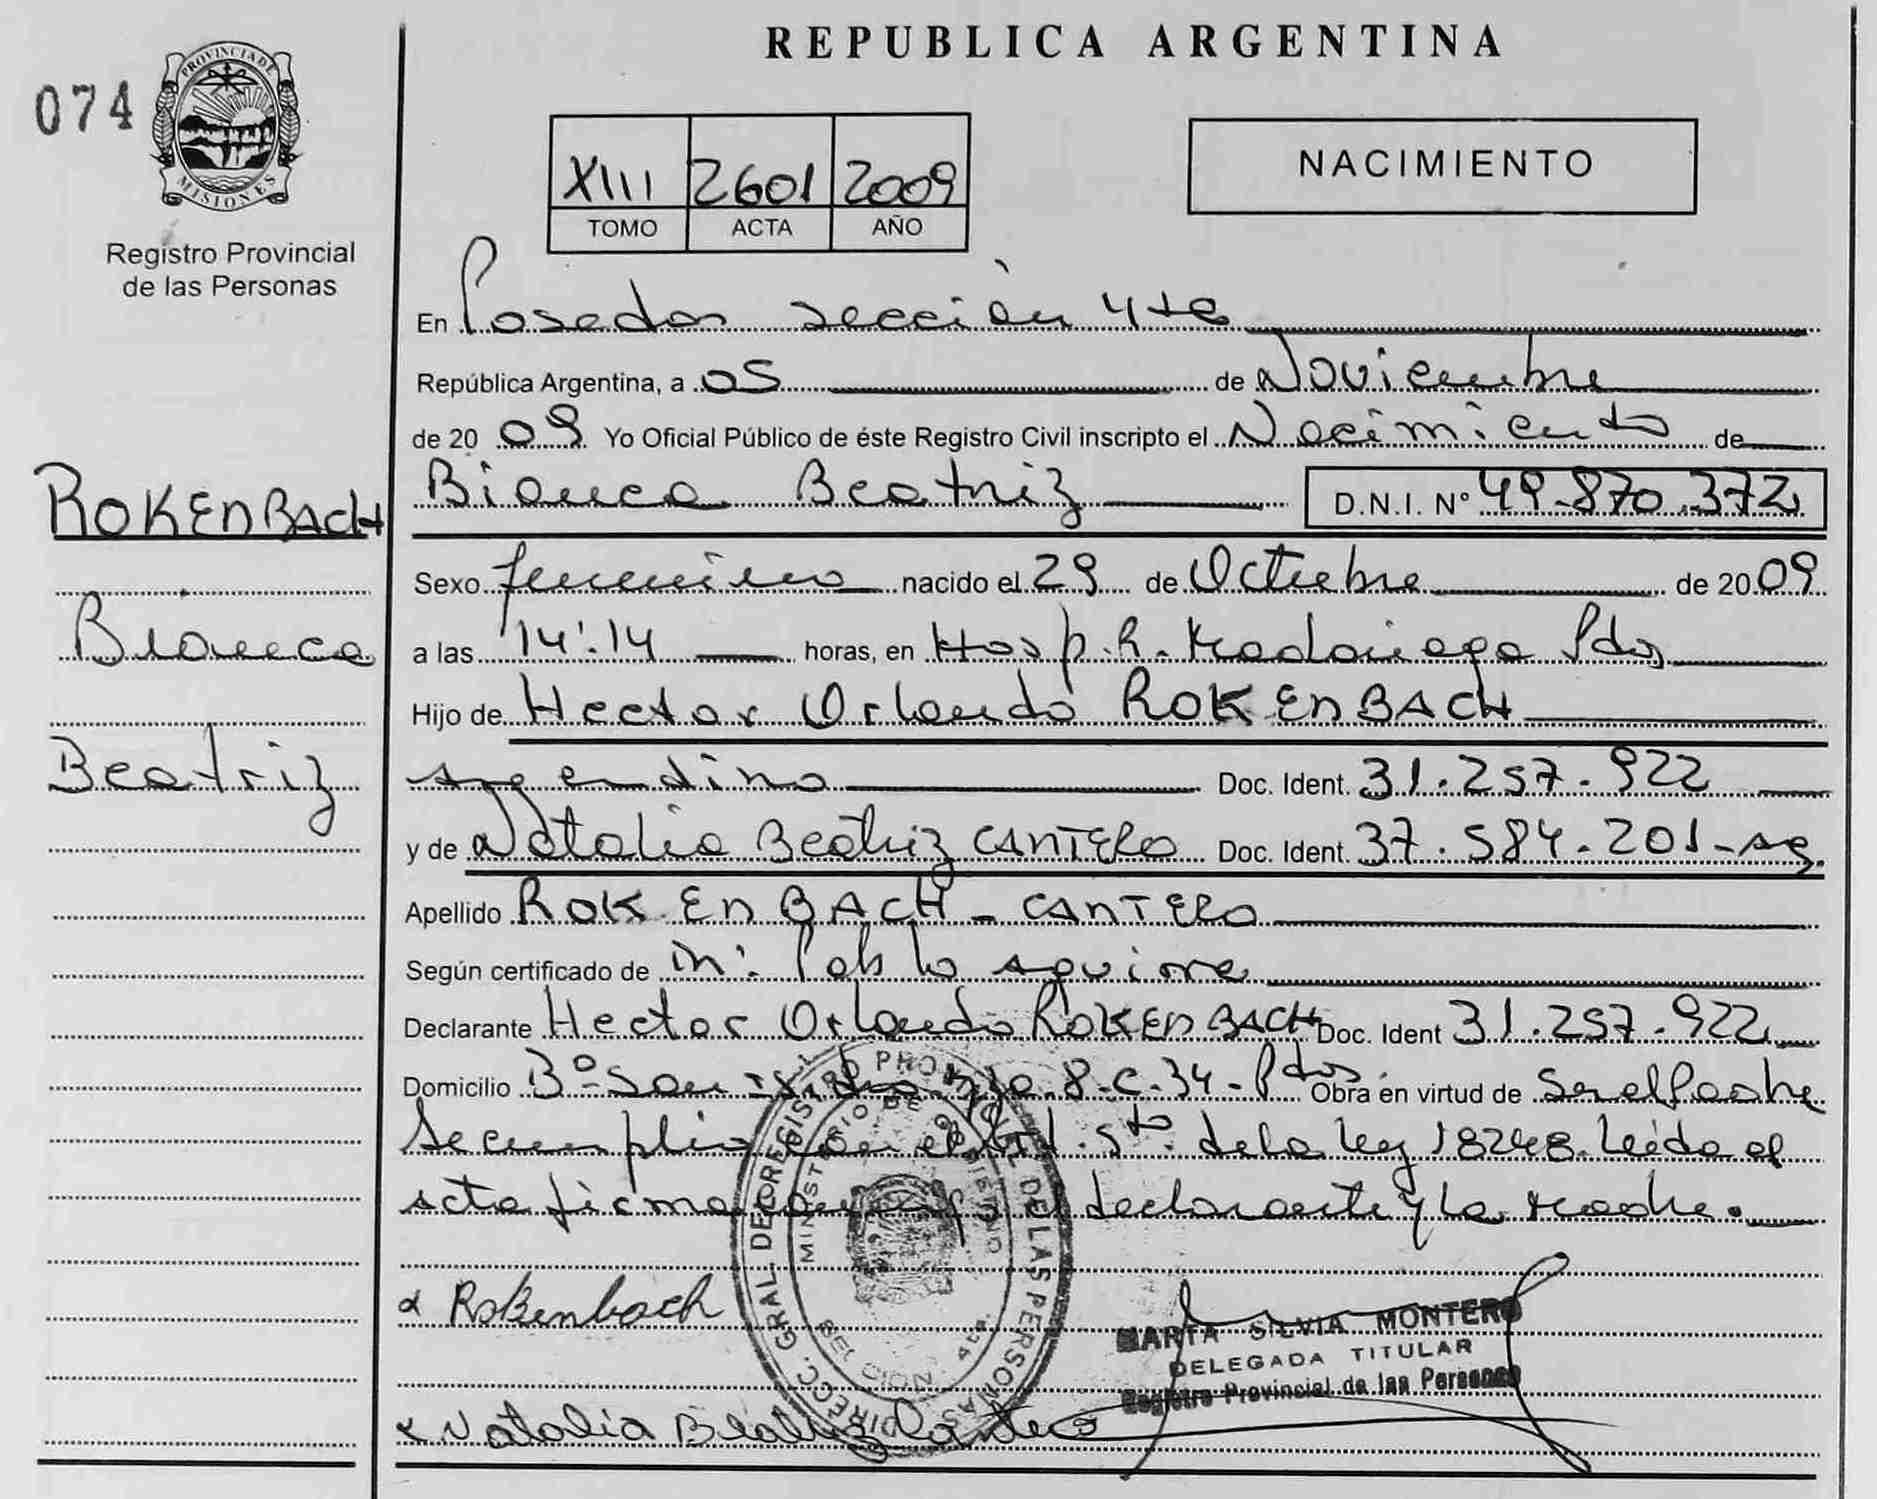 REPUBLICA ARGENTINA
074
PROVINCIA DE
MISIONES
Registro Provincial
de las Personas
NACIMIENTO
XIII 2601 2009
TOMO ACTA AÑO
En Posadas sección 4ta
República Argentina, a 05 de Noviembre
de 20 09 Yo Oficial Público de éste Registro Civil inscripto el Nacimiento de
Bianca Beatriz D.N.I. Nº 49.870.372
ROKENBACH
Bianca
Beatriz
Sexo femenino nacido el 29 de Octubre de 20 09
a las 14:14 horas, en Hosp. R. Madariaga Pdas
Hijo de Hector Orlando ROKENBACH
argentino Doc. Ident. 31.257.922
y de Natalia Beatriz CANTERO Doc. Ident. 37.584.201-arg.
Apellido ROKENBACH - CANTERO
Según certificado de Pablo Aguirre
Declarante Hector Orlando ROKENBACH Doc. Ident 31.257.922
Domicilio Bº San 8-C-34-Pdas. Obra en virtud de Ser el Padre
Se cumplió con el Art. 5to. de la ley 18248. Leída el
acta firma el declarante y la madre.
Rokenbach
MARTA SILVIA MONTERO
DELEGADA TITULAR
Registro Provincial de las Personas
Natalia Beatriz Cantero
DIRECC. GRAL. DEL REGISTRO PROVINCIAL DE LAS PERSONAS
MINISTERIO DE GOBIERNO